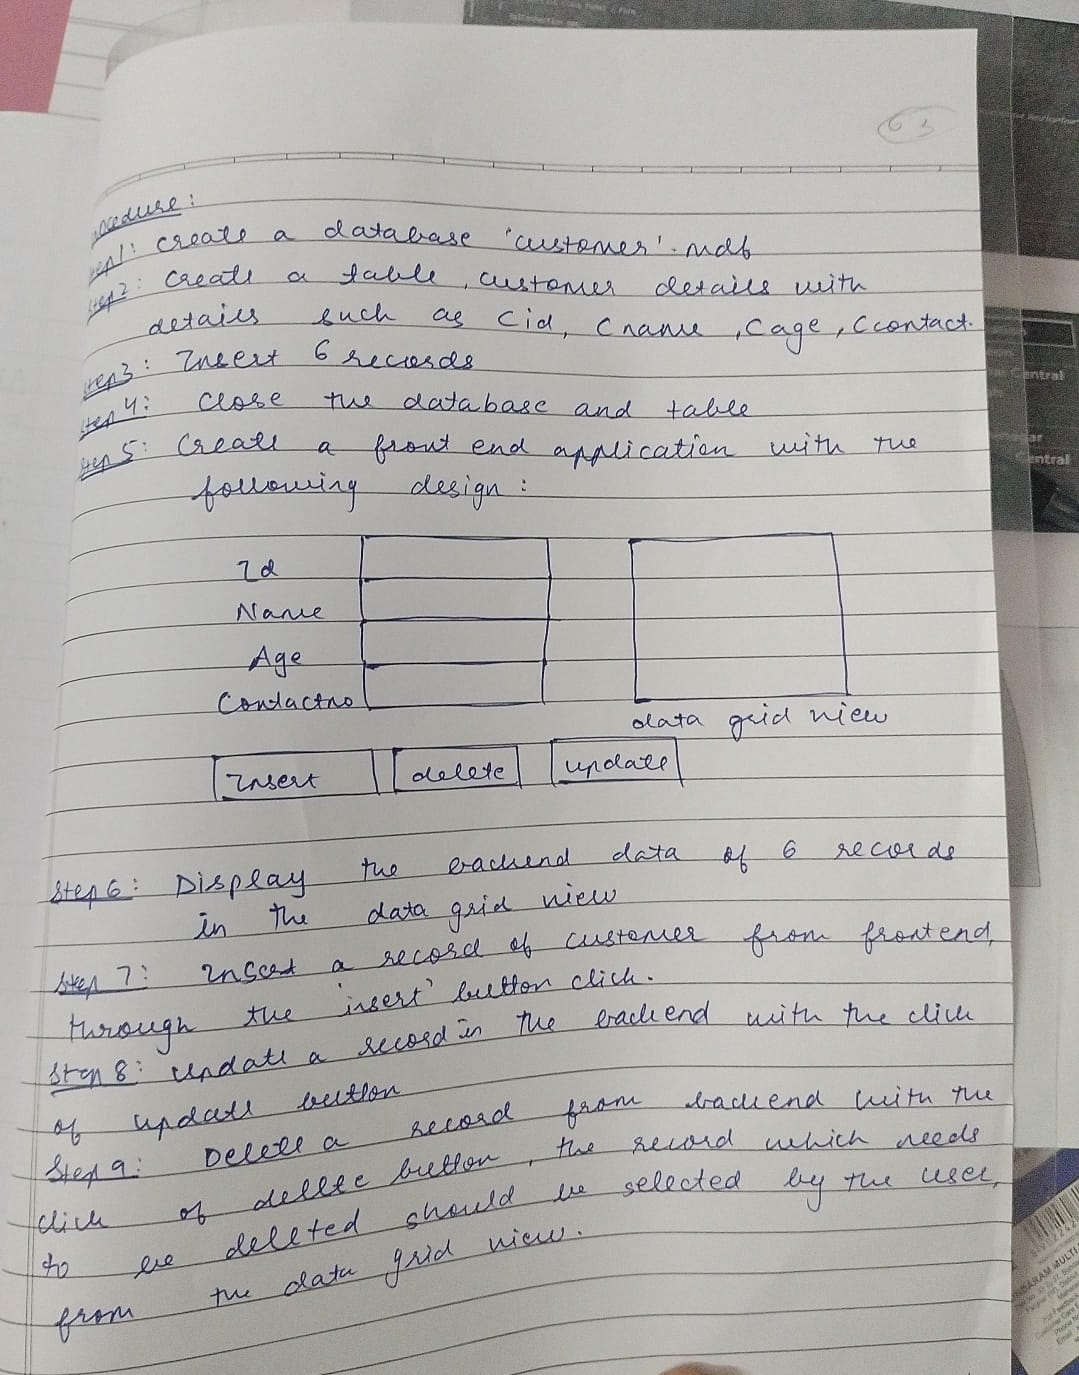 63
ocedure:
tep1: create a database 'customer'.mdb
step2: Create a table, customer details with
details such as Cid, Cname, Cage, Ccontact.
step3: Insert 6 records
step4: Close the database and table
step5: Create a front end application with the
following design:
Id
Name
Age
Contactno
data grid view
Insert delete update
Step6: Display the backend data of 6 records
in the data grid view
Step 7: Insert a record of customer from frontend,
through the 'insert' button click.
Step 8: Update a record in the backend with the click
of update button
Step 9: Delete a record from backend with the
click of dellte button, the record which needs
to be deleted should be selected by the user,
from the data grid view.
entral
entral